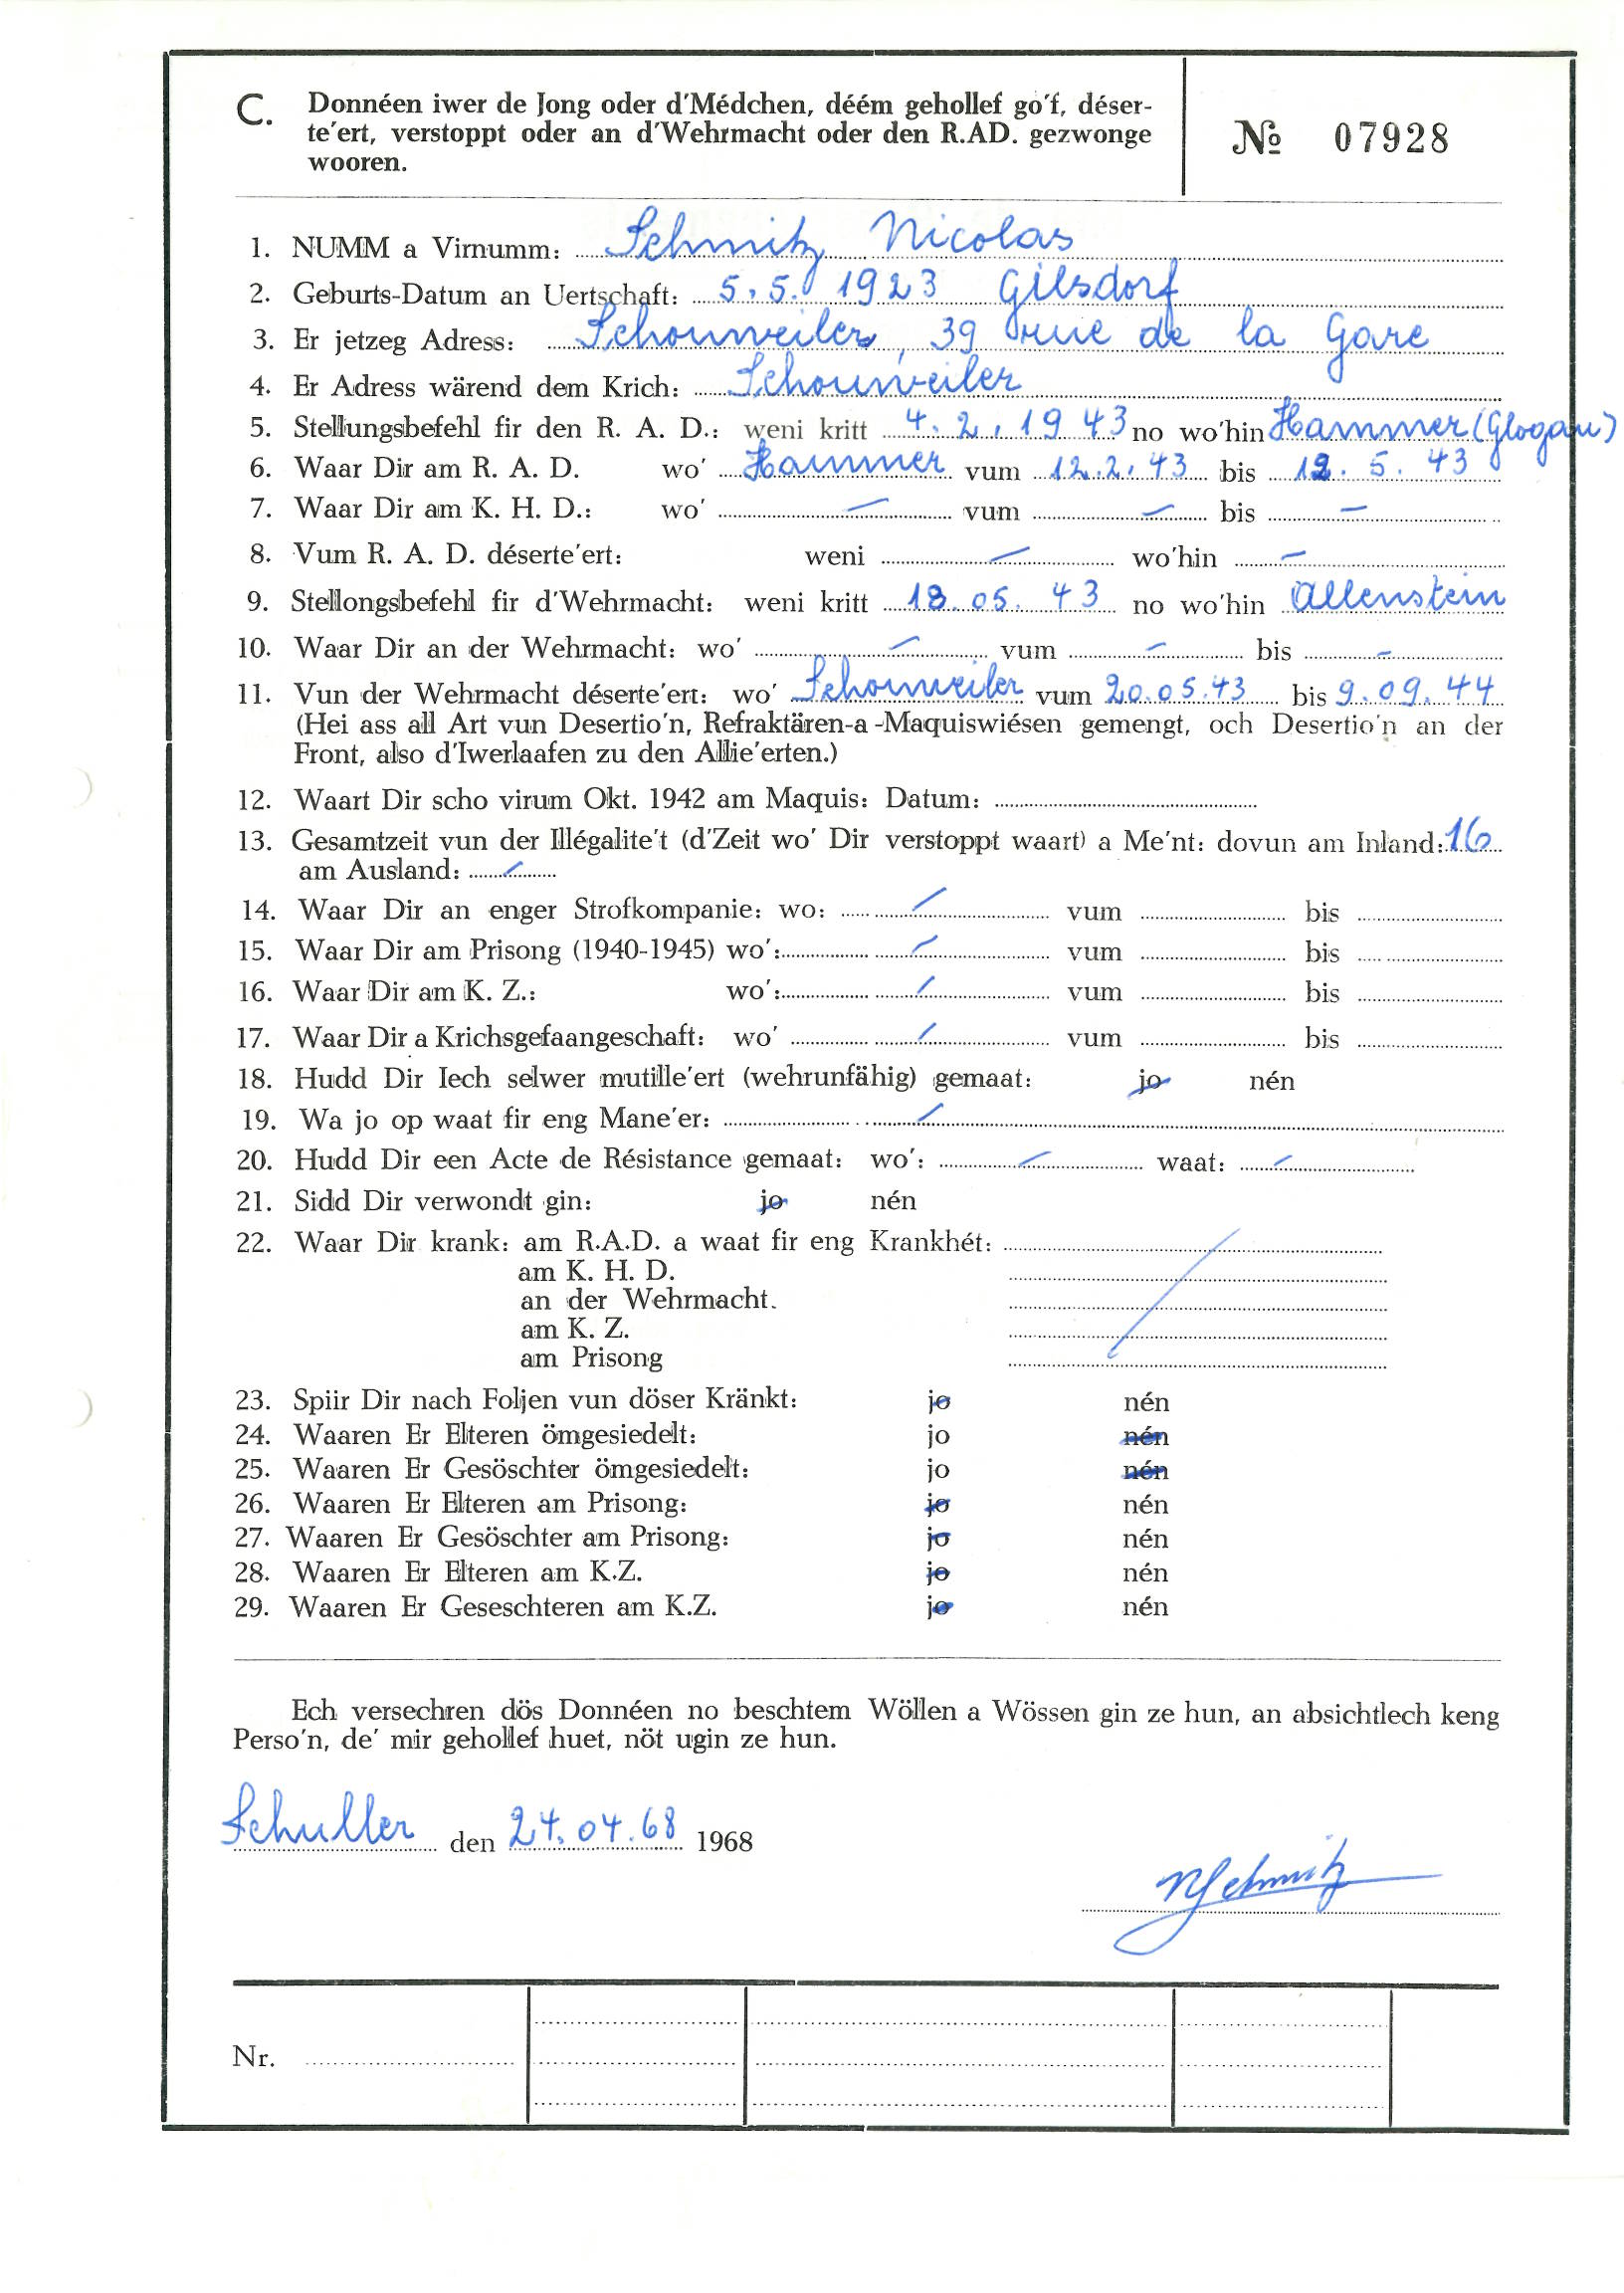 C. Donnéen iwer de Jong oder d'Médchen, déém gehollef go'f, déser-
te'ert, verstoppt oder an d'Wehrmacht oder den R.AD. gezwonge
wooren.
№ 07928
1. NUMM a Virnumm: Schmitz Nicolas
2. Geburts-Datum an Uertschaft: 5.5. 1923 Gilsdorf
3. Er jetzeg Adress: Schouweiler, 39 rue de la Gare
4. Er Adress wärend dem Krich: Schouweiler
5. Stellungsbefehl fir den R. A. D.: weni kritt 4.2.1943 no wo'hin Hammer (Glogau)
6. Waar Dir am R. A. D. wo' Hammer vum 12.2.43 bis 12.5.43
7. Waar Dir am K. H. D.: wo' — vum — bis —
8. Vum R. A. D. déserte'ert: weni — wo'hin —
9. Stellongsbefehl fir d'Wehrmacht: weni kritt 18.05.43 no wo'hin Allenstein
10. Waar Dir an der Wehrmacht: wo' — vum — bis —
11. Vun der Wehrmacht déserte'ert: wo' Schouweiler vum 20.05.43 bis 9.09.44
(Hei ass all Art vun Desertio'n, Refraktären-a-Maquiswiésen gemengt, och Desertio'n an der
Front, also d'Iwerlaafen zu den Allie'erten.)
12. Waart Dir scho virum Okt. 1942 am Maquis: Datum:
13. Gesamtzeit vun der Illégalite't (d'Zeit wo' Dir verstoppt waart) a Me'nt: dovun am Inland: 16
am Ausland: /
14. Waar Dir an enger Strofkompanie: wo: / vum bis
15. Waar Dir am Prisong (1940-1945) wo': / vum bis
16. Waar Dir am K. Z.: wo': / vum bis
17. Waar Dir a Krichsgefaangeschaft: wo' / vum bis
18. Hudd Dir Iech selwer mutille'ert (wehrunfähig) gemaat: jo nén
19. Wa jo op waat fir eng Mane'er: /
20. Hudd Dir een Acte de Résistance gemaat: wo': — waat: —
21. Sidd Dir verwondt gin: jo nén
22. Waar Dir krank: am R.A.D. a waat fir eng Krankhét:
am K. H. D.
an der Wehrmacht.
am K. Z.
am Prisong
23. Spiir Dir nach Foljen vun döser Kränkt: jo nén
24. Waaren Er Elteren ömgesiedelt: jo nén
25. Waaren Er Gesöschter ömgesiedelt: jo nén
26. Waaren Er Elteren am Prisong: jo nén
27. Waaren Er Gesöschter am Prisong: jo nén
28. Waaren Er Elteren am K.Z. jo nén
29. Waaren Er Geseschteren am K.Z. jo nén
Ech versechren dös Donnéen no beschtem Wöllen a Wössen gin ze hun, an absichtlech keng
Perso'n, de' mir gehollef huet, nöt ugin ze hun.
Schuller den 24.04.68 1968
NSchmitz
Nr.